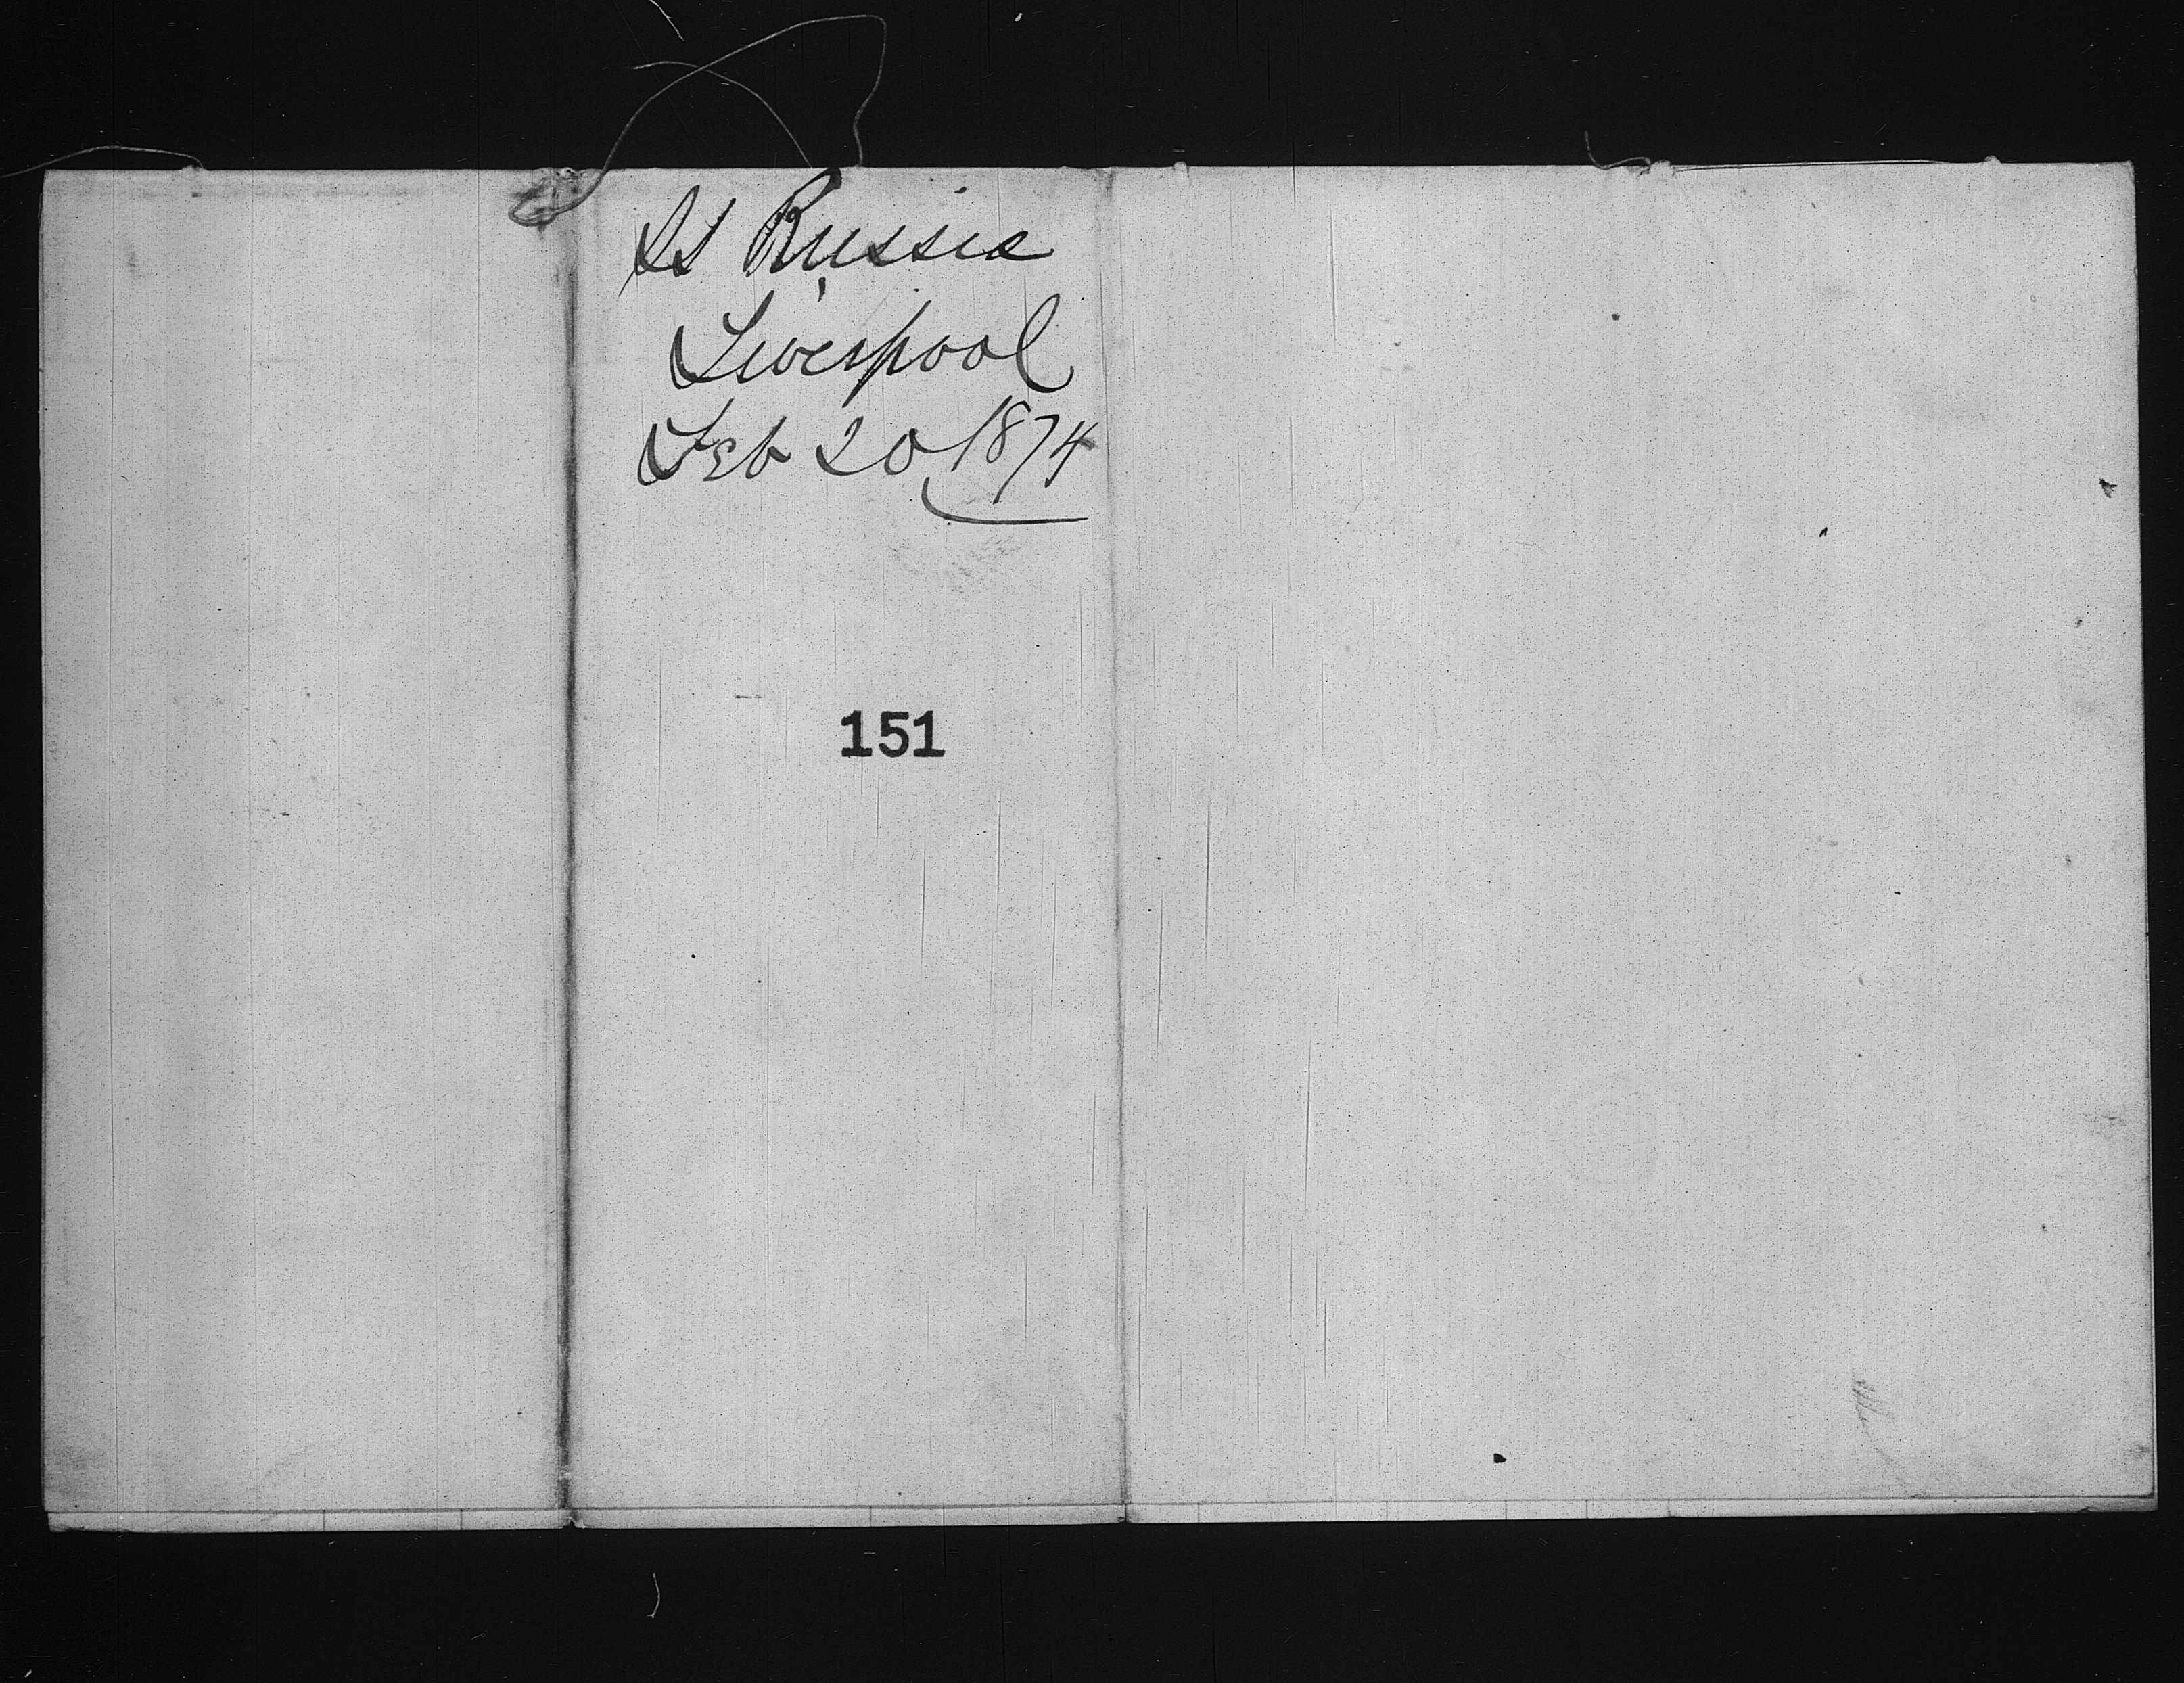 SS Russia
Liverpool
Feb 20 1874
151